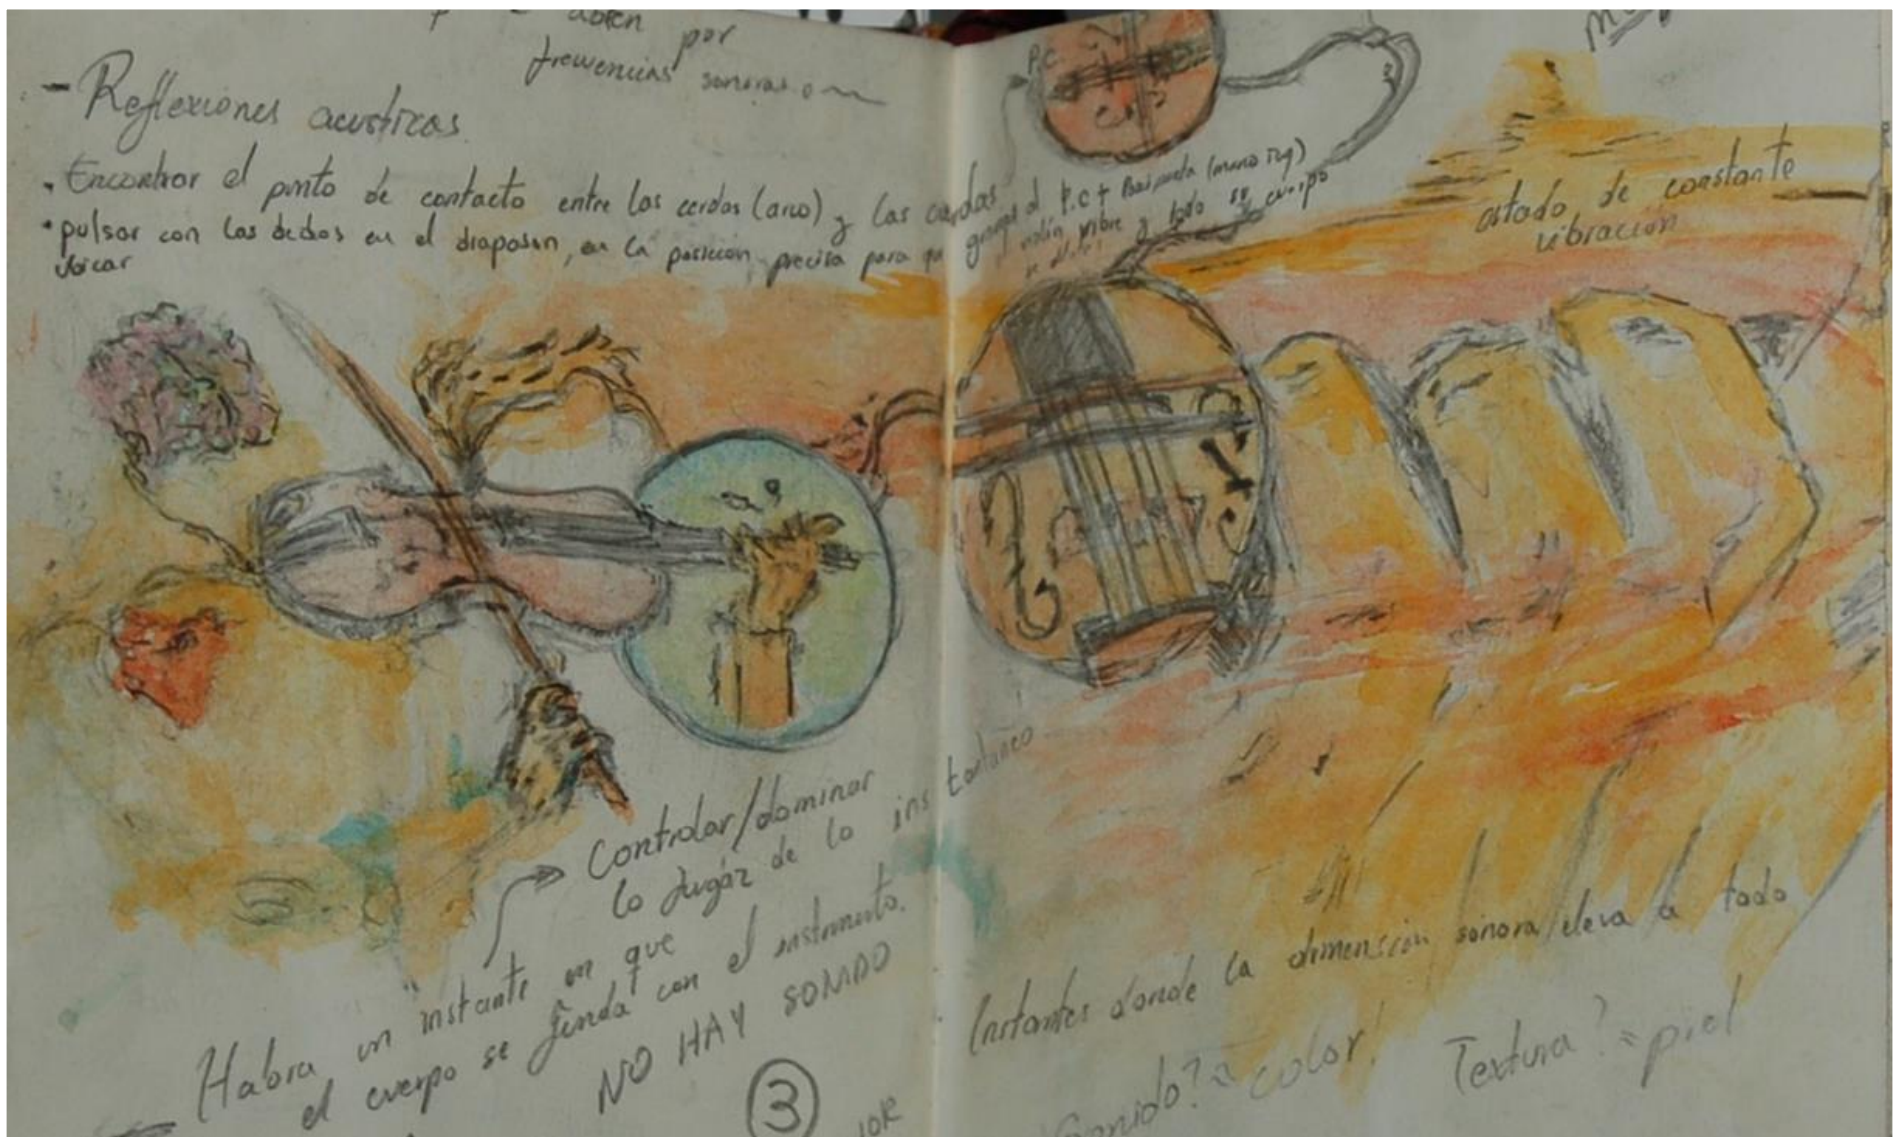 abren por
frecuencias sonoras o
- Reflexiones acusticas
• Encontrar el punto de contacto entre las cerdas (arco) y las cuerdas
• pulsar con los dedos en el diapason, en la posicion precisa para que
Ubicar
P.C.
el P.C + (mano izq)
violin vibre y todo su cuerpo
estado de constante
vibración
Controlar/dominar
lo fugáz de lo instantaneo
Habra un instante en que
el cuerpo se funda con el instrumento.
NO HAY SONIDO
3
Instantes donde la dimension sonora eleva a todo
Sonido? = color!
Textura? = piel